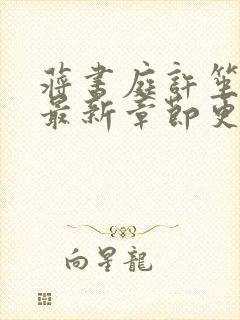 蔣書庭許笙
最新章節更
向星龍